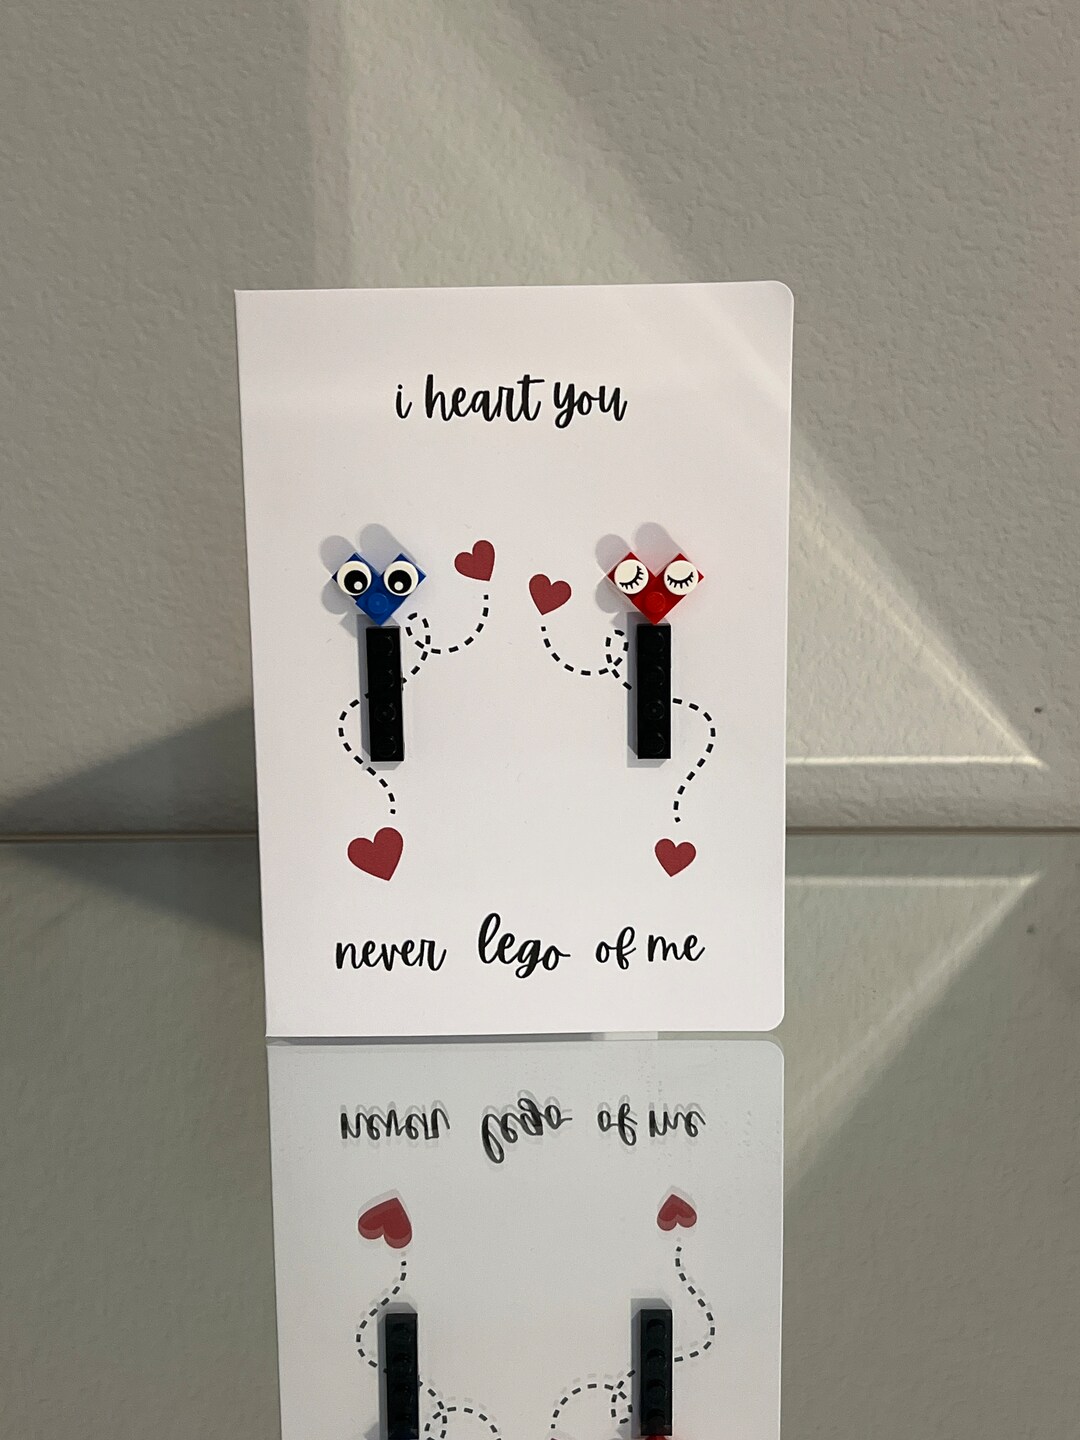 i heart you
never lego of me